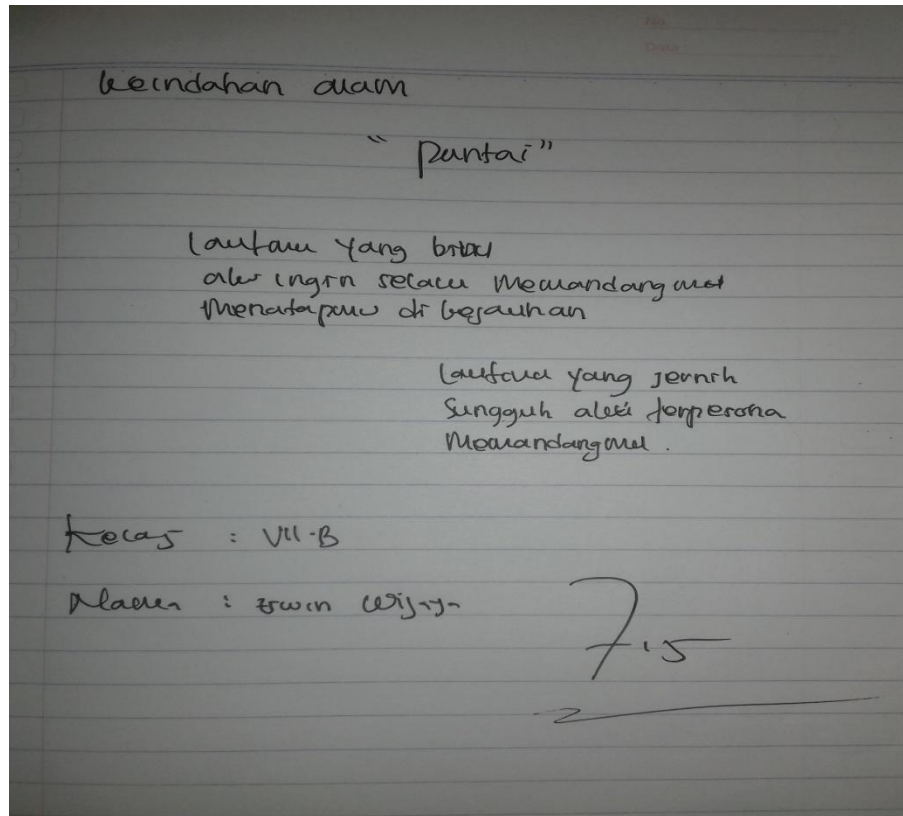 No.
Date:
keindahan alam
"Pantai"
Lautan yang biru
aku ingin selalu memandangmu
Menatapmu di kejauhan
Lautan yang jernih
Sungguh aku terpesona
Memandangmu.
Kelas : VII-B
Nama : Erwin Wijaya
7,5